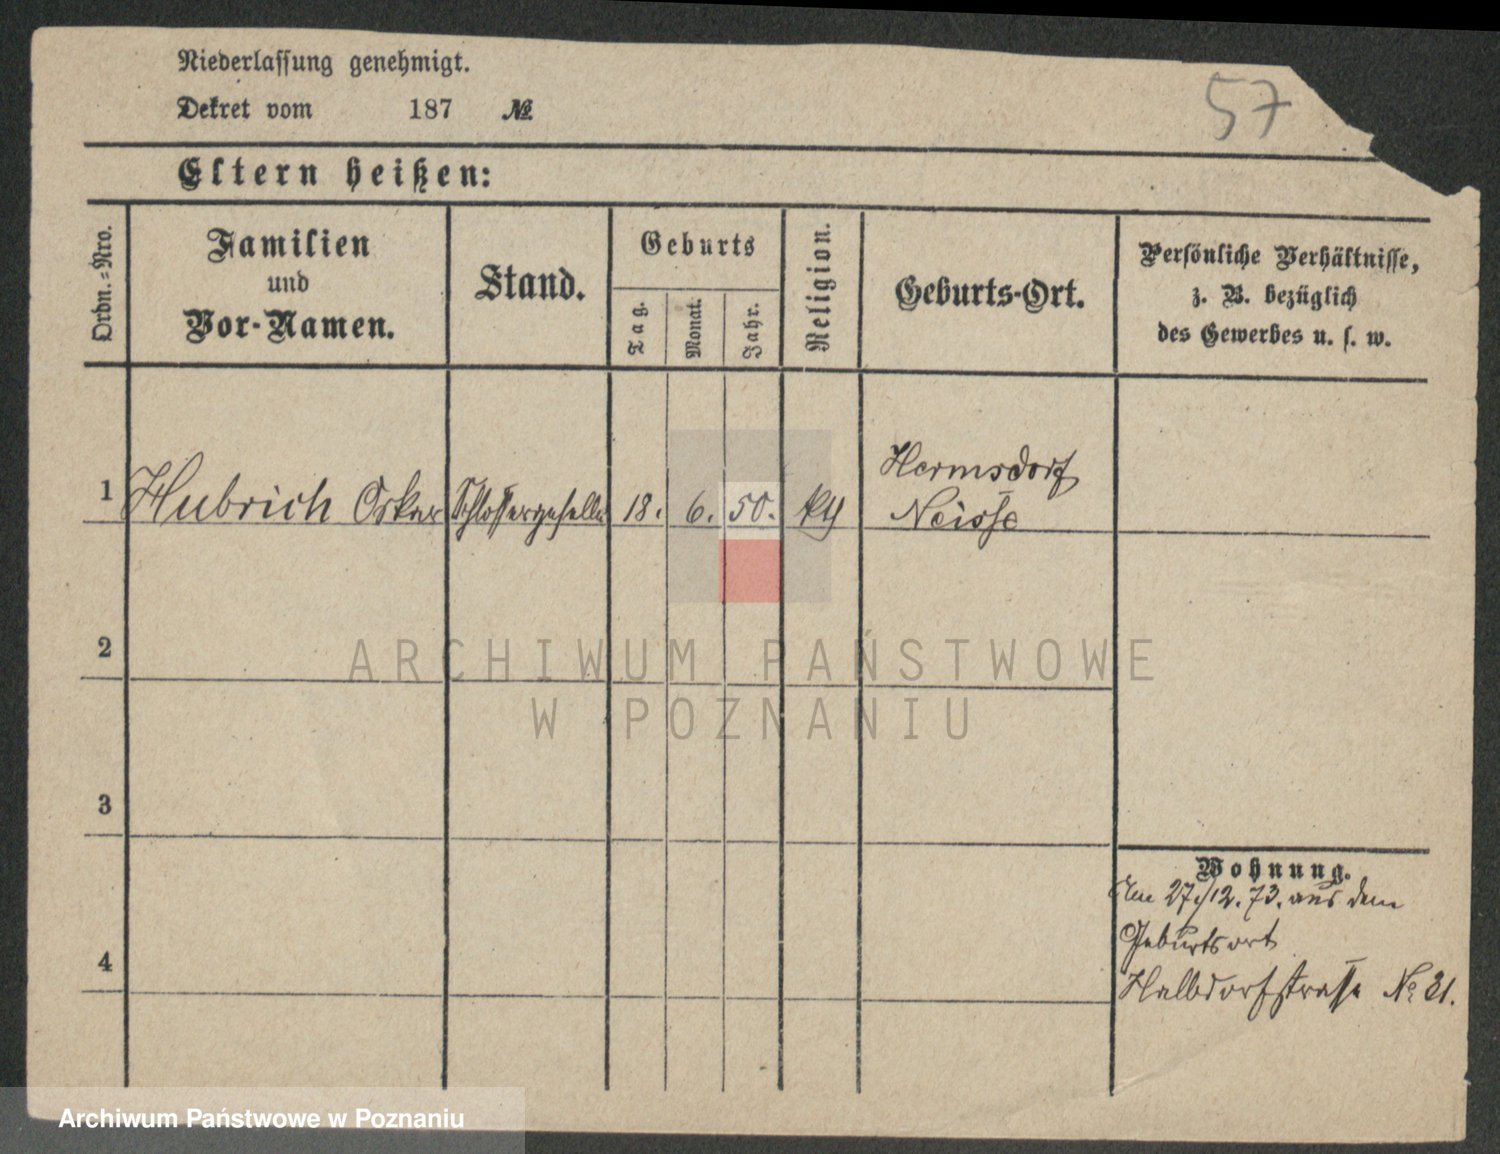 Niederlassung genehmigt.
57
Dekret vom 187 №
Eltern heißen:
Ordn.=Nro.
Familien
und
Vor-Namen.
Stand.
Geburts
Tag.
Monat.
Jahr.
Religion.
Geburts-Ort.
Persönliche Verhältnisse,
z. B. bezüglich
des Gewerbes u. s. w.
1 Hubrich Oskar Schlossergeselle 18. 6. 50. kth Hermsdorf
Neisse
2
3
4
Wohnung.
Am 27./12. 73. aus dem
Geburtsort
Halbdorfstrasse No 21.
ARCHIWUM PAŃSTWOWE
W POZNANIU
Archiwum Państwowe w Poznaniu